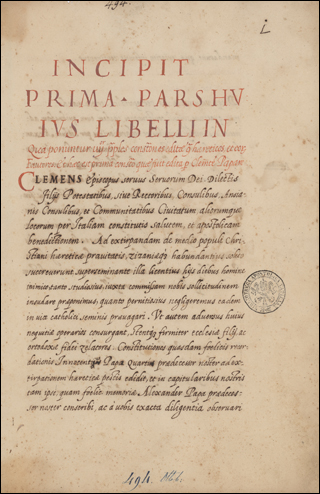 494.
L
INCIPIT
PRIMA · PARS HV
IVS LIBELLI IN
CLEMENS Episcopus seruus Seruorum Dei Dilectis
filijs Potestatibus, siue Rectoribus, Consulibus, Ancia
nis Consulibus, et Communitatibus Ciuitatum aliorumque
locorum per Italiam constitutis salutem, et apostolicam
benedictionem. Ad extirpandam de medio populi Chri
stiani haereticae prauitatis zizaniam, habundantius sobo
succreuerunt, superseminante illa licentius his diebus homine
inimico tanto studiosius, iuxta commissam nobis sollicitudinem
insudare proponimus, quanto pernitiosius negligeremus eadem
in uia catholici seminis prauagari. Vt autem aduersus huius
nequitiae operarios consurgant, stentque firmiter ecclesiae filij, ac
ortodoxae fidei zelatores. Constitutiones quasdam foelicis recor
dationis Innocentius Papa Quartus predecessor noster ad ex
tirpationem haereticae pestis edidit, et in capitularibus nostris
eam ipse, quam foelic memoriae Alexander Papa predeces
sor noster conscribi, ac a uobis exacta diligentia obseruari
494